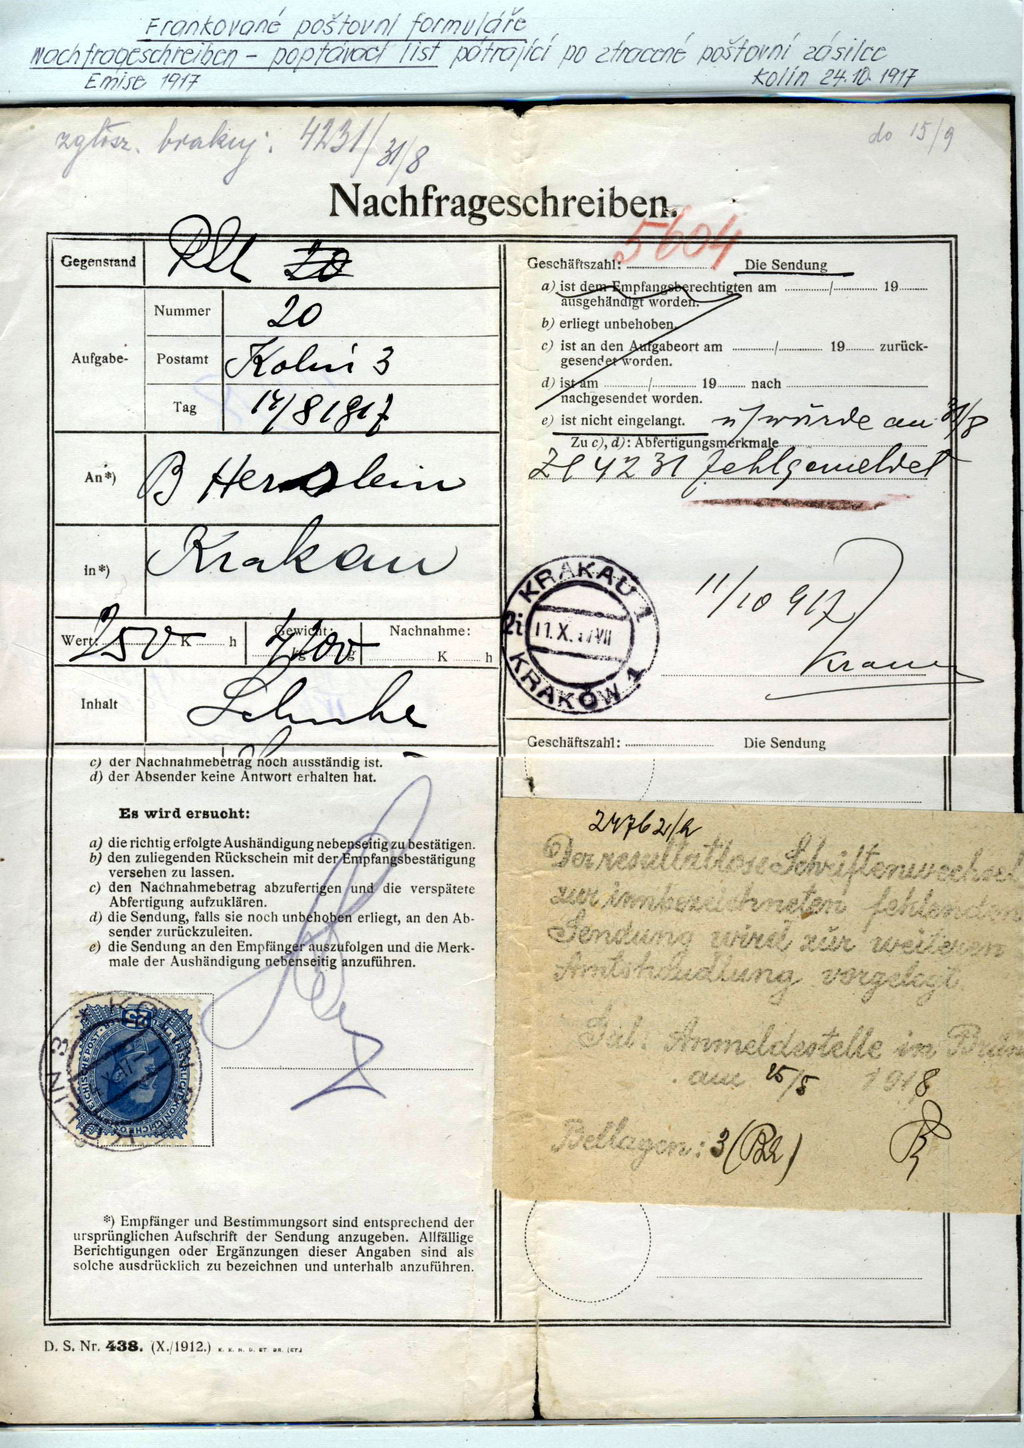 Frankované poštovní formuláře
Nachfrageschreiben - poptávací list pátrající po ztracené poštovní zásilce
Emise 1917
Kolín 24.10.1917
zgłosz. brakuj: 4231/31/8
do 15/9
Nachfrageschreiben.
5604
Gegenstand
20
Nummer
20
Aufgabe-
Postamt
Kolin 3
Tag
14/8 1917
An*)
B
in*)
Krakau
Wert:
250
K
h
Gewicht:
kg
g
Nachnahme:
K
h
Inhalt
Schuhe
c) der Nachnahmebetrag noch ausständig ist.
d) der Absender keine Antwort erhalten hat.
Es wird ersucht:
a) die richtig erfolgte Aushändigung nebenseitig zu bestätigen.
b) den zuliegenden Rückschein mit der Empfangsbestätigung
versehen zu lassen.
c) den Nachnahmebetrag abzufertigen und die verspätete
Abfertigung aufzuklären.
d) die Sendung, falls sie noch unbehoben erliegt, an den Ab-
sender zurückzuleiten.
e) die Sendung an den Empfänger auszufolgen und die Merk-
male der Aushändigung nebenseitig anzuführen.
25
KOLIN 3
*) Empfänger und Bestimmungsort sind entsprechend der
ursprünglichen Aufschrift der Sendung anzugeben. Allfällige
Berichtigungen oder Ergänzungen dieser Angaben sind als
solche ausdrücklich zu bezeichnen und unterhalb anzuführen.
D. S. Nr. 438. (X./1912.)
Geschäftszahl:
Die Sendung
a) ist dem Empfangsberechtigten am / 19
ausgehändigt worden.
b) erliegt unbehoben.
c) ist an den Aufgabeort am / 19 zurück-
gesendet worden.
d) ist am / 19 nach
nachgesendet worden.
e) ist nicht eingelangt. u/ wurde am 31/8
Zu c), d): Abfertigungsmerkmale
Zl 4231 fehlgemeldet
KRAKAU 1
2i
11.X.
VII
KRAKÓW 1
11/10 917
Geschäftszahl:
Die Sendung
24762/a
Der resultatlose Schriftenwechsel
zur innbezeichneten fehlenden
Sendung wird zur weiteren
Amtshandlung vorgelegt.
Anmeldestelle in
am 25/5 1918
Beilagen: 3